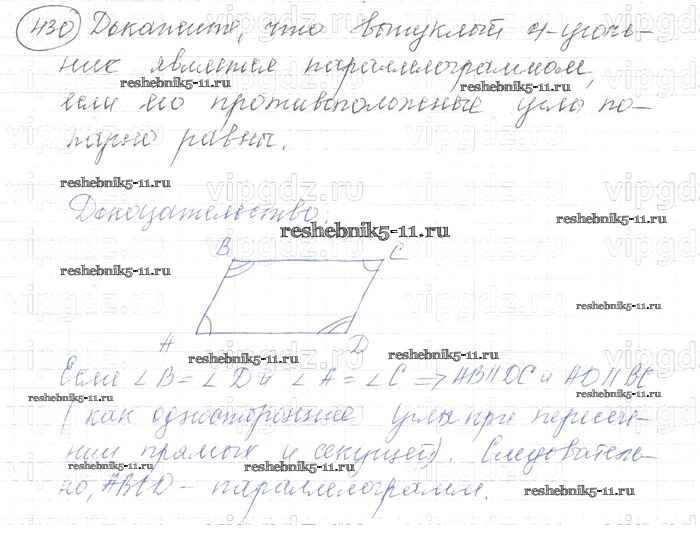 430 Докажите, что выпуклый 4-уголь-
ник является параллелограммом,
reshebnik5-11.ru reshebnik5-11.ru
если его противоположные углы по-
парно равны.
reshebnik5-11.ru vipgdz.ru
Доказательство.
reshebnik5-11.ru reshebnik5-11.ru
B C
reshebnik5-11.ru
reshebnik5-11.ru
A D
reshebnik5-11.ru reshebnik5-11.ru
Если ∠B = ∠D и ∠A = ∠C ⇒ AB || DC и AD || BC
reshebnik5-11.ru reshebnik5-11.ru
(как односторонние углы при пересече-
нии прямых и секущей). Следователь-
reshebnik5-11.ru reshebnik5-11.ru
но, ABCD - параллелограмм.
reshebnik5-11.ru